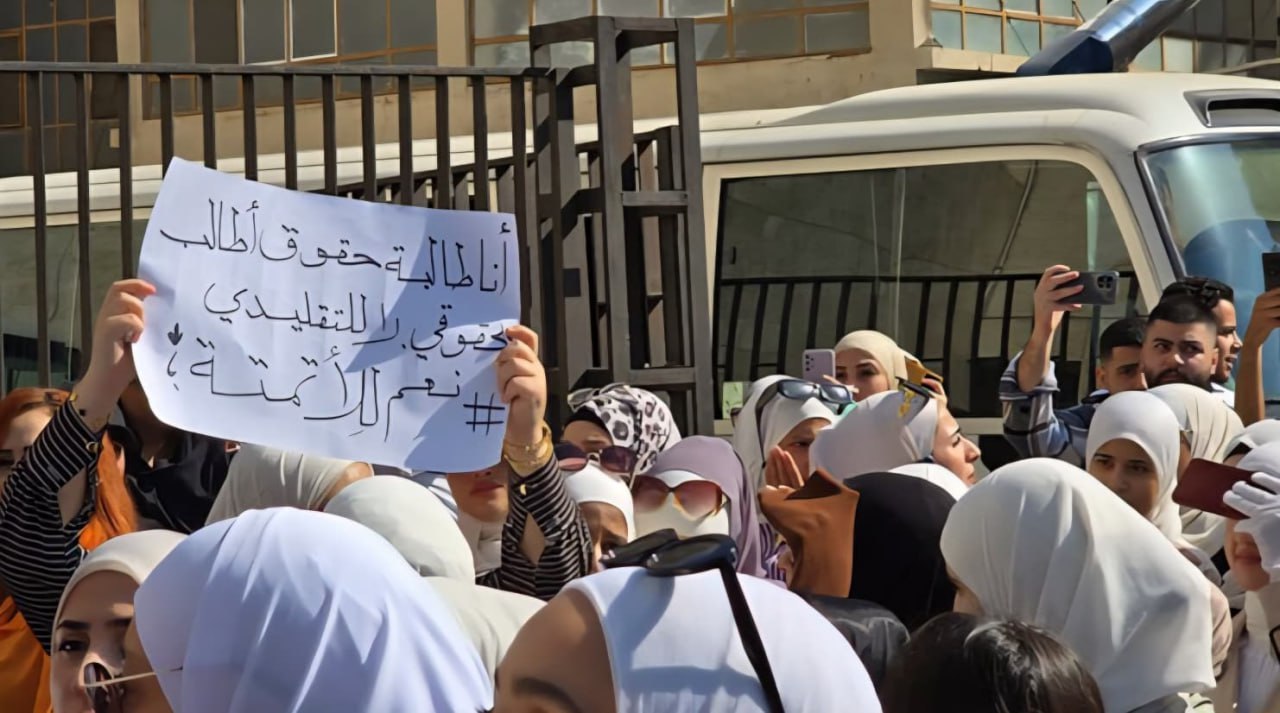 أنا طالبة حقوق أطالب
بحقوقي. لا للتقليدي
# نعم للأتمتة؛